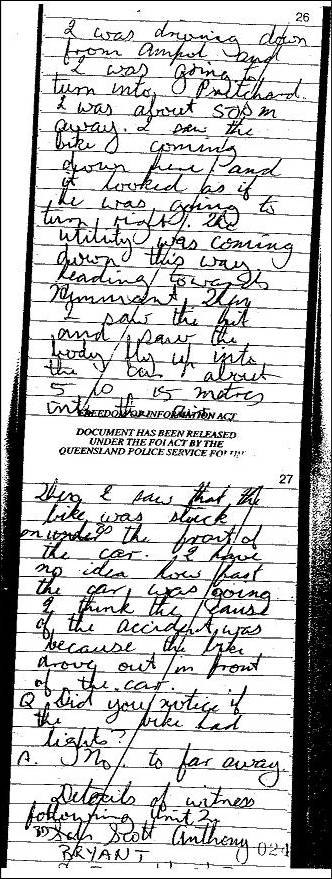 26
I was driving down
from Ampol and
I was going to
turn into Pritchard.
I was about 50 m
away. I saw the
bike coming
down here and
it looked as if
he was going to
turn right. The
utility was coming
down this way
heading towards
Wynnum. Then
I saw the hit
and saw the
body fly up into
the air about
5 10 15 metres
into the air
FREEDOM OF INFORMATION ACT
DOCUMENT HAS BEEN RELEASED
UNDER THE FOI ACT BY THE
QUEENSLAND POLICE SERVICE FOI
27
Then I saw that the
bike was stuck
under the front of
the car. I have
no idea how fast
the car was going
I think the cause
of the accident was
because the bike
drove out in front
of the car.
Q. Did you notice if
the bike had
lights?
A. No. to far away
Details of witness
following Unit 2.
Scott Anthony 024
BRYANT